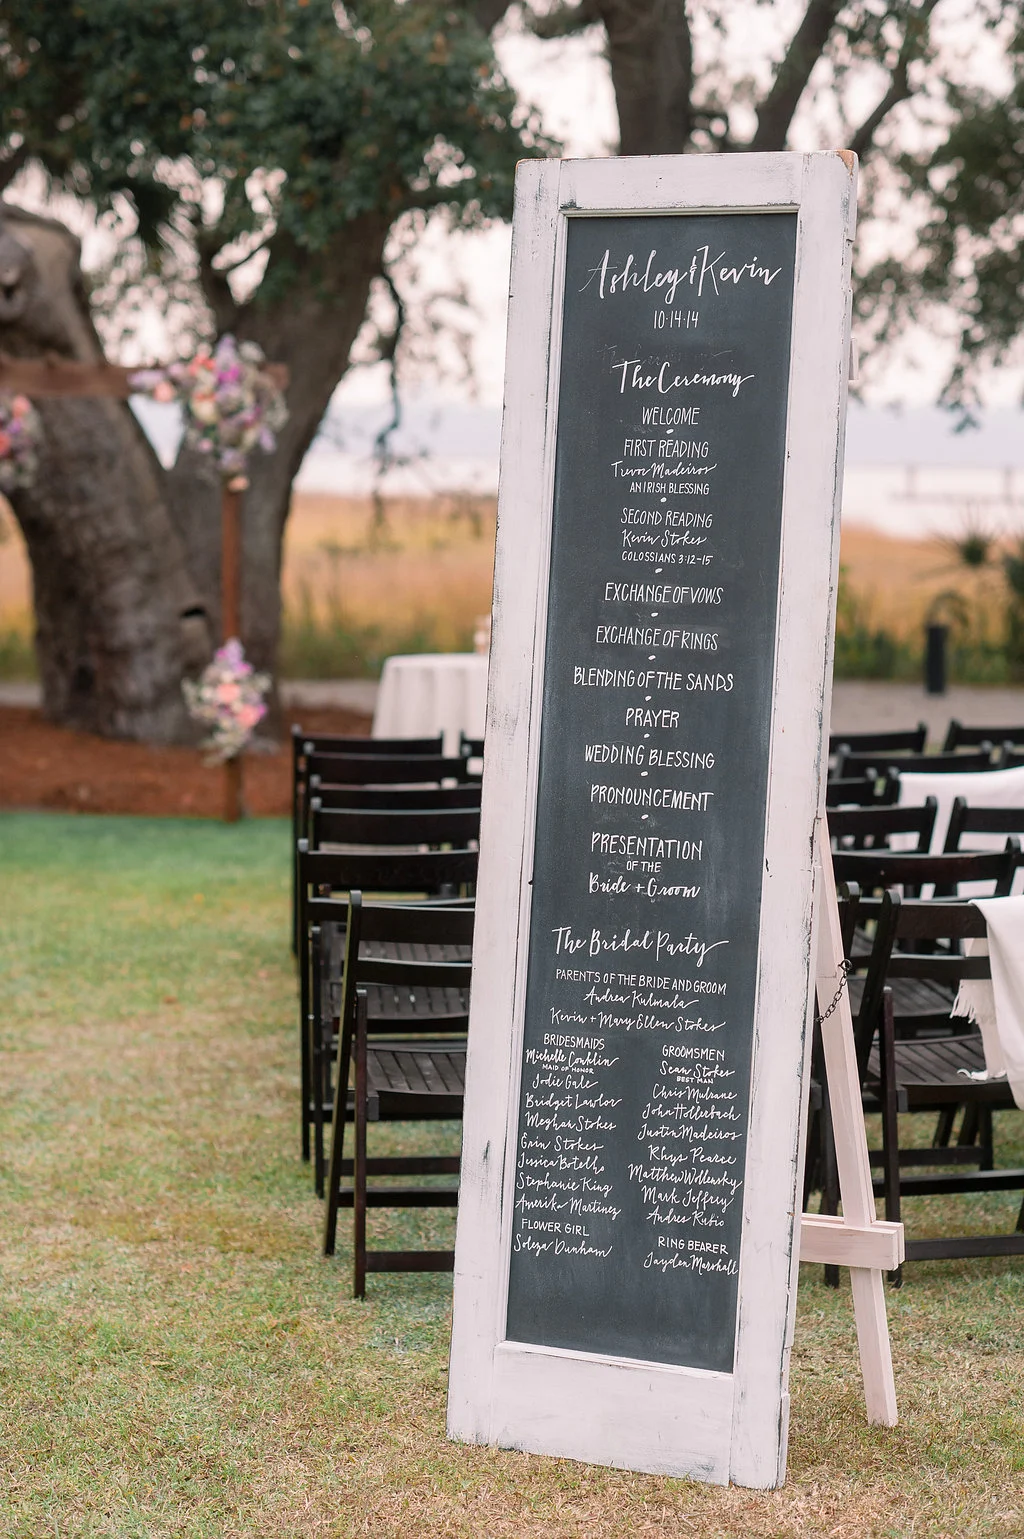 Ashley & Kevin
10·14·14
The Ceremony
WELCOME
FIRST READING
Trevor Madeiros
AN IRISH BLESSING
SECOND READING
Kevin Stokes
COLOSSIANS 3:12-15
EXCHANGE OF VOWS
EXCHANGE OF RINGS
BLENDING OF THE SANDS
PRAYER
WEDDING BLESSING
PRONOUNCEMENT
PRESENTATION
OF THE
Bride + Groom
The Bridal Party
PARENTS OF THE BRIDE AND GROOM
Andrea Kulmala
Kevin + Mary Ellen Stokes
BRIDESMAIDS
Michelle Conklin
MAID OF HONOR
Jodie Gale
Bridget Lawlor
Meghan Stokes
Erin Stokes
Jessica Botelho
Stephanie King
Amerika Martinez
FLOWER GIRL
Soleya Dunham
GROOMSMEN
Sean Stokes
BEST MAN
Chris Mulrane
John Hollerbach
Justin Madeiros
Rhys Pearce
Matthew Wollensky
Mark Jeffrey
Andres Rubio
RING BEARER
Jayden Marshall